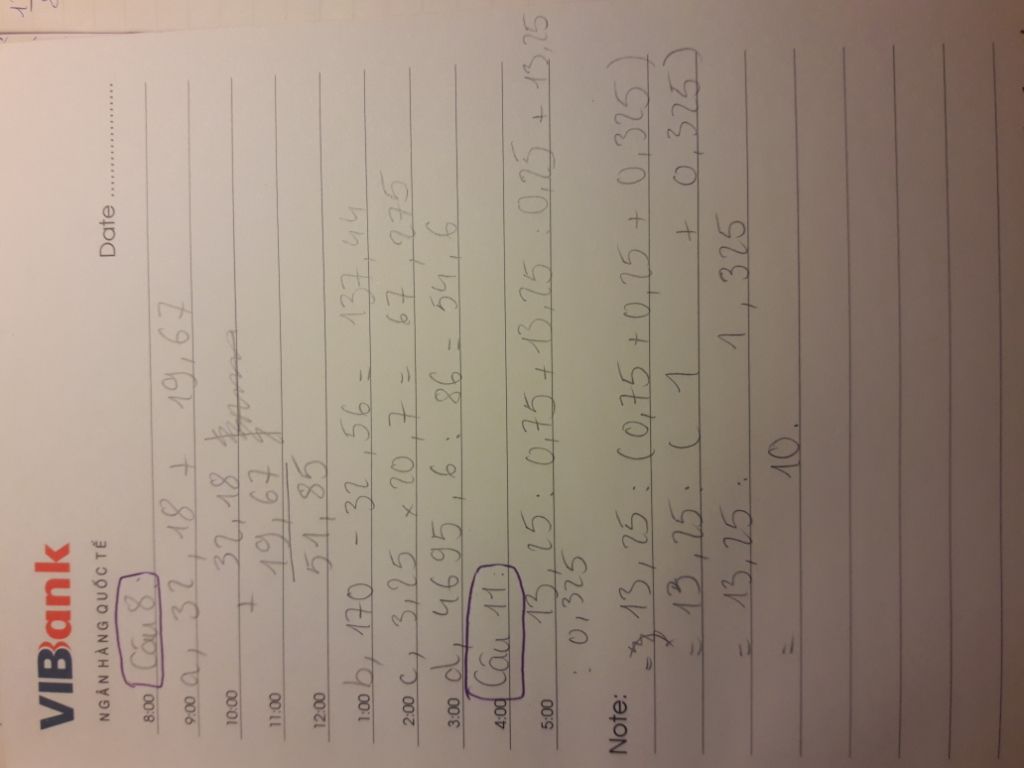 VIBank
NGÂN HÀNG QUỐC TẾ
Date ....................
8:00 Câu 8:
9:00 a, 32,18 + 19,67
10:00 32,18
11:00 + 19,67
12:00 51,85
1:00 b, 170 - 32,56 = 137,44
2:00 c, 3,25 × 20,7 = 67,275
3:00 d, 4695,6 : 86 = 54,6
4:00 Câu 11:
5:00 13,25 : 0,75 + 13,25 : 0,25 + 13,25
: 0,325
Note:
= 13,25 : (0,75 + 0,25 + 0,325)
= 13,25 : ( 1 + 0,325)
= 13,25 : 1,325
= 10.